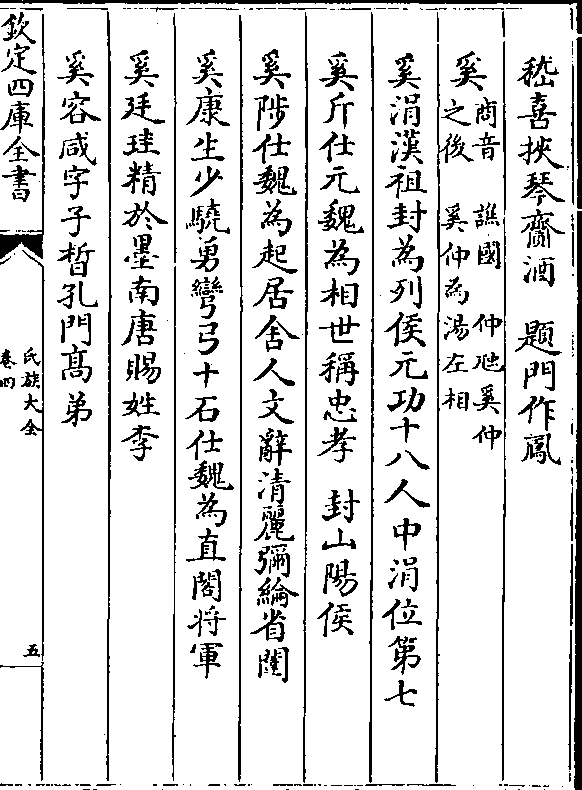 嵇喜挾琴齎酒　題門作鳳
奚商音　譙國　仲虺奚仲之後　奚仲為湯左相
奚涓漢祖封為列侯元功十八人中涓位第七
奚斤仕元魏為相世稱忠孝　封山陽侯
奚陟仕魏為起居舍人文辭清麗彌綸省闥
奚康生少驍勇彎弓十石仕魏為直閣将軍
奚廷珪精於墨南唐賜姓李
奚容咸字子晳孔門髙弟
欽定四庫全書
氏族大全
卷四
五